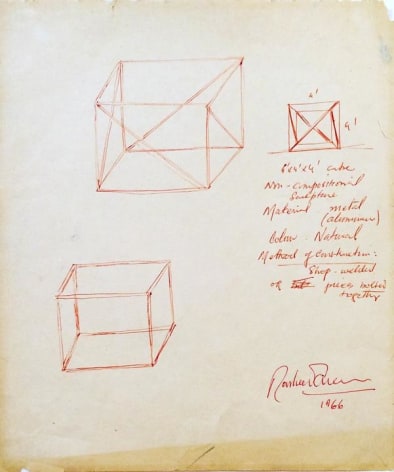 4'
4'
4'x4'x4' cube
Non-compositional
Sculpture
Material metal
(aluminum)
Colour - Natural
Method of construction:
Shop-welded
or pieces bolted
together
1966